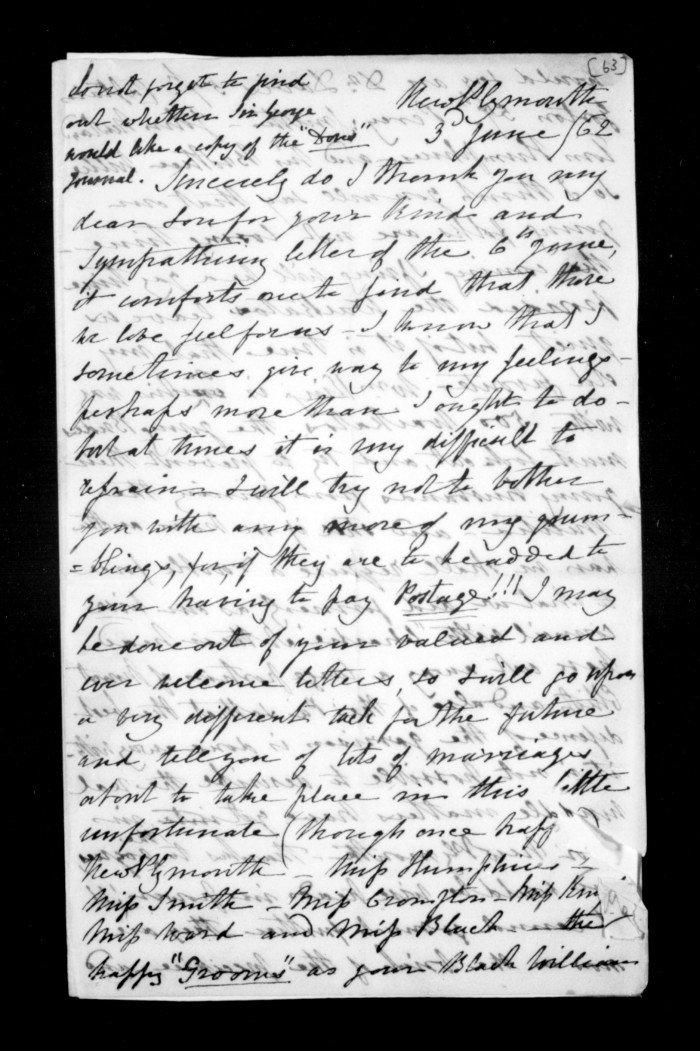 [63]
do not forget to find
out whether Sir George
would like a copy of the "Dons"
Journal.
New Plymouth
3d June /62
Sincerely do I thank you my
dear Son for your kind and
Sympathising letter of the 6th June,
it comforts one to find that those
we love feel for us - I know that I
sometimes give way to my feelings -
perhaps more than I ought to do -
but at times it is very difficult to
refrain - I will try not to bother
you with any more of my grum-
=blings, for, if they are to be added to
your having to pay Postage!!! I may
be done out of your valued and
ever welcome letters, so I will go upon
a very different tack for the future
and tell you of lots of marriages
about to take place in this little
unfortunate (though once happy
New Plymouth - Miss Humphries -
Miss Smith - Miss Crompton - Miss
Miss Ward and Miss Black the
happy "Grooms" as your Black William